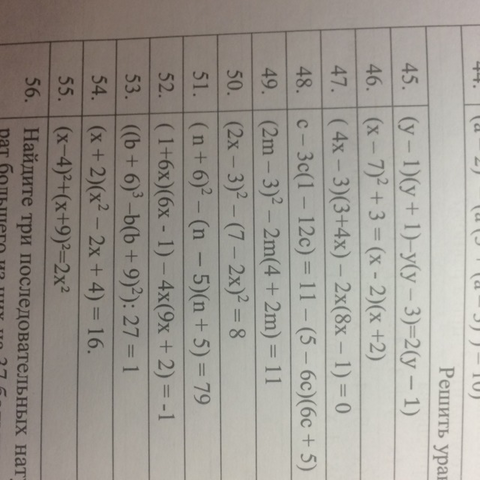 Решить
45. (y – 1)(y + 1)–y(y – 3)=2(y – 1)
46. (x – 7)² + 3 = (x - 2)(x +2)
47. ( 4x – 3)(3+4x) – 2x(8x – 1) = 0
48. c – 3c(1 – 12c) = 11 – (5 – 6c)(6c + 5)
49. (2m – 3)² – 2m(4 + 2m) = 11
50. (2x – 3)² – (7 – 2x)² = 8
51. ( n + 6)² – (n – 5)(n + 5) = 79
52. ( 1+6x)(6x - 1) – 4x(9x + 2) = -1
53. ((b + 6)³ –b(b + 9)²): 27 = 1
54. (x + 2)(x² – 2x + 4) = 16.
55. (x–4)²+(x+9)²=2x²
56. Найдите три последовательных
большего из них на 37